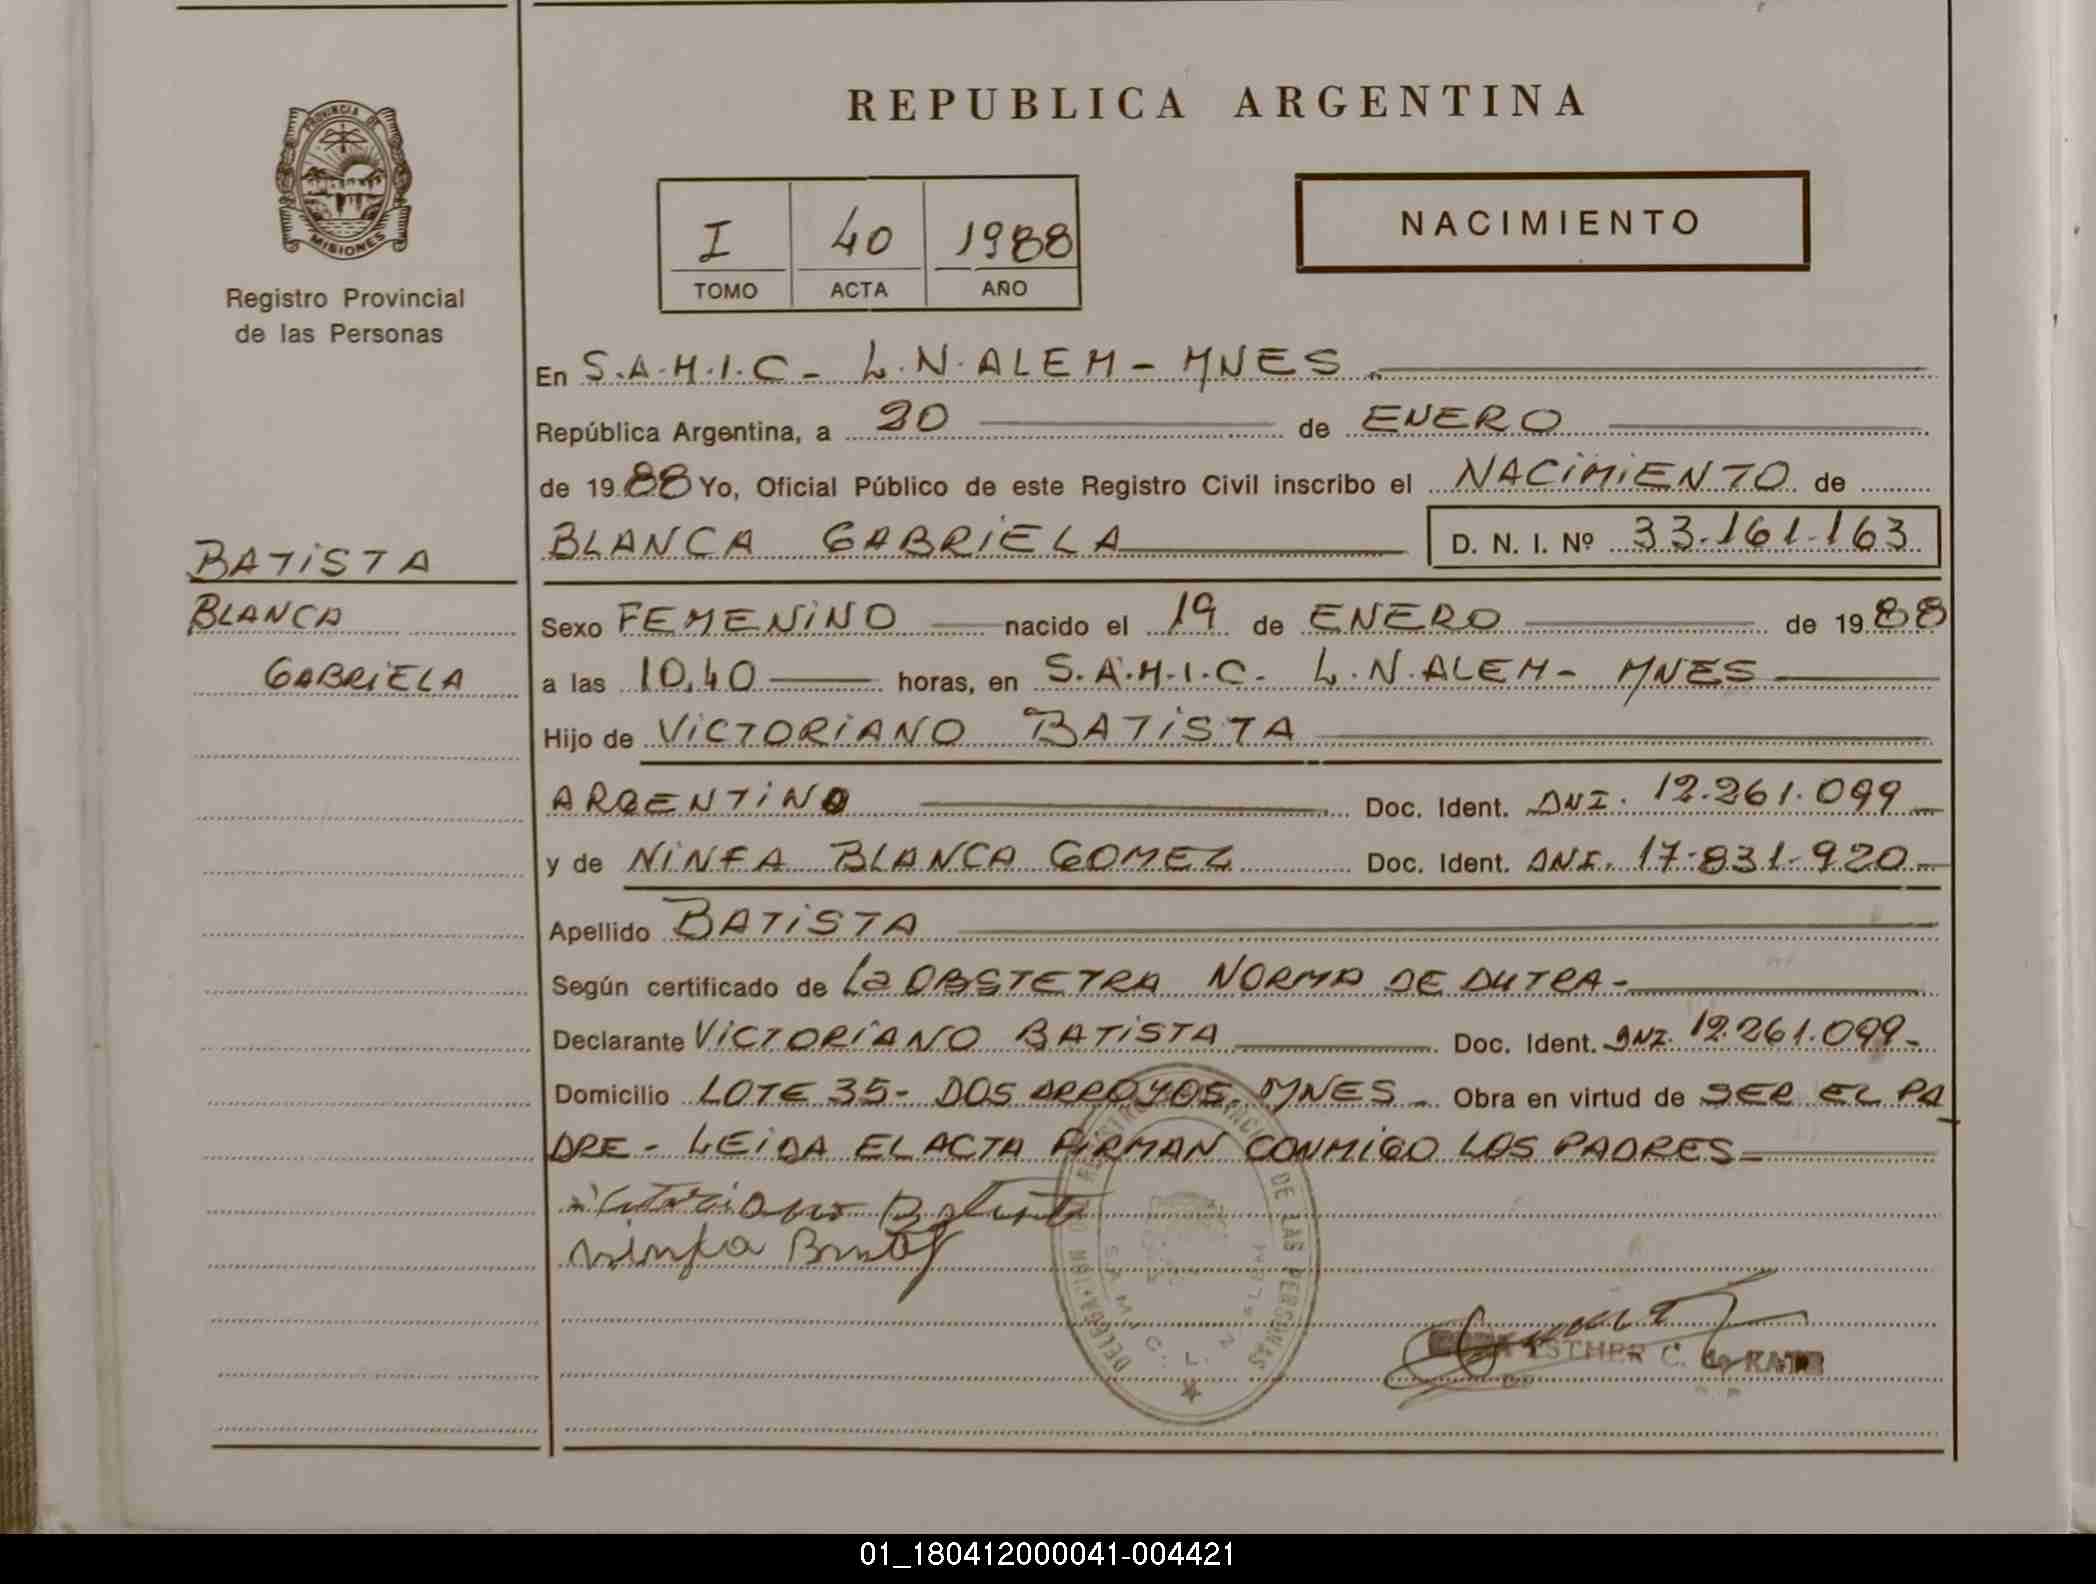 REPUBLICA ARGENTINA
PROVINCIA DE
MISIONES
Registro Provincial
de las Personas
I 40 1988
TOMO ACTA AÑO
NACIMIENTO
En S.A.M.I.C - L.N. ALEM - MNES
República Argentina, a 20 de ENERO
de 1988 Yo, Oficial Público de este Registro Civil inscribo el NACIMIENTO de
BLANCA GABRIELA D. N. I. Nº 33.161.163
BATISTA
BLANCA
GABRIELA
Sexo FEMENINO nacido el 19 de ENERO de 1988
a las 10,40 horas, en S.A.M.I.C. L.N. ALEM - MNES
Hijo de VICTORIANO BATISTA
ARGENTINO Doc. Ident. DNI. 12.261.099
y de NINFA BLANCA GOMEZ Doc. Ident. DNI. 17.831.920
Apellido BATISTA
Según certificado de La OBSTETRA NORMA DE DUTRA -
Declarante VICTORIANO BATISTA Doc. Ident. DNI. 12.261.099 -
Domicilio LOTE 35 - DOS ARROYOS. MNES - Obra en virtud de SER EL PA
DRE - LEIDA EL ACTA FIRMAN CONMIGO LOS PADRES
DE LAS PERSONAS
S.A.M.I.C. L. N. ALEM
ESTHER C. de
01_180412000041-004421